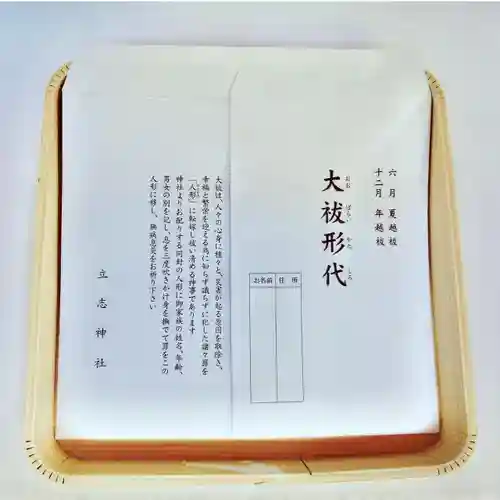 六月 夏越祓
十二月 年越祓
大祓形代
おお ばらい かた しろ
住所
お名前
大祓は、人々の心身に種々と、災害が起る原因を取除き、
幸福と繁栄を迎える為に知らず識らずに犯した諸々罪を
「人形」に転嫁し祓い清める神事であります
神社よりお配りする同封の人形に御家族の姓名、年齢、
男女の別を記し、息を三度吹きかけ身を撫でて罪をこの
人形に移し、無病息災をお祈り下さい
立志神社